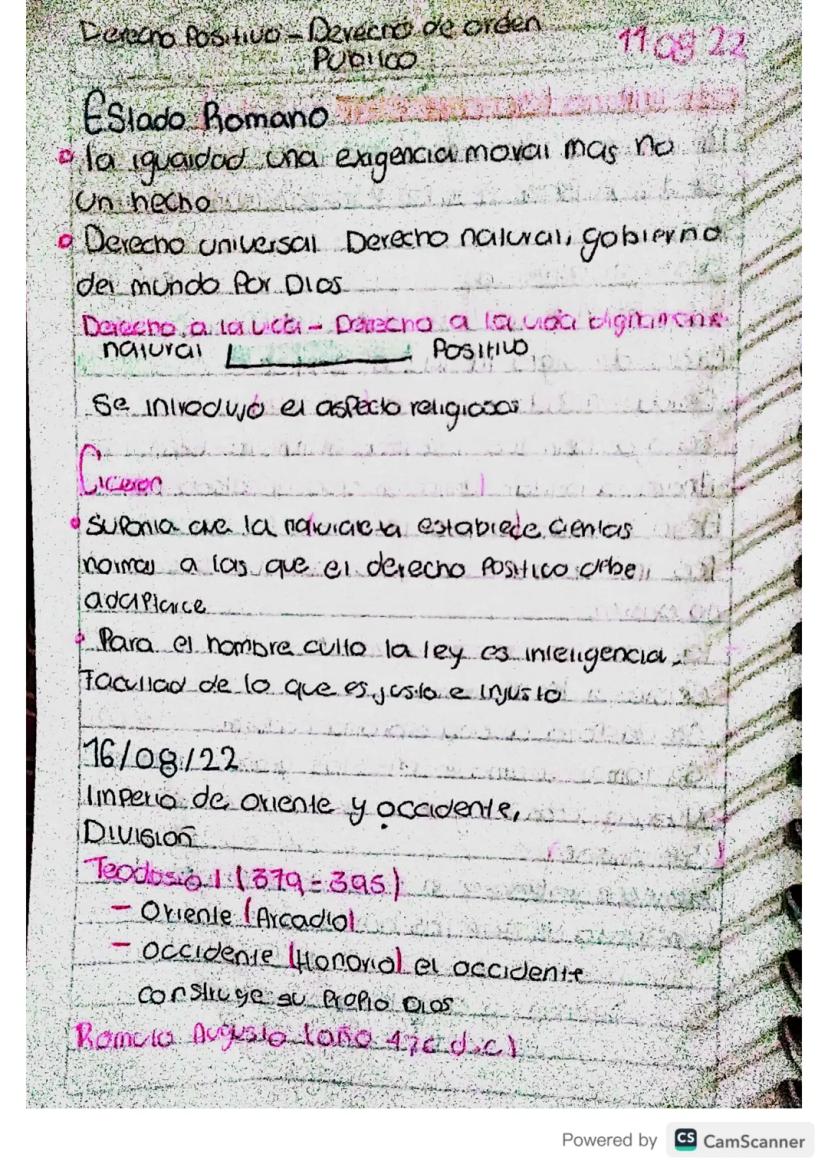 Derecho Positivo - Derecho de orden
Publico
11/08/22
Estado Romano
la igualdad una exigencia moral mas no
un hecho
Derecho universal Derecho natural, gobierno
del mundo Por Dios
Derecho a la vida - Derecho a la vida
natural Positivo
Se introdujo el aspecto religiosos
Ciceron
Suponia que la naturaleza establece ciertas
normas a las que el derecho Positivo debe
adaptarce
Para el hombre culto la ley es inteligencia,
Facultad de lo que es justo e injusto
16/08/22
Imperio de oriente y occidente,
División
Teodosio I (379-395)
- Oriente (Arcadio)
- occidente (Honorio) el occidente
construye su Propio Dios
Romulo Augusto (año 476 d.c)
Powered by CS CamScanner